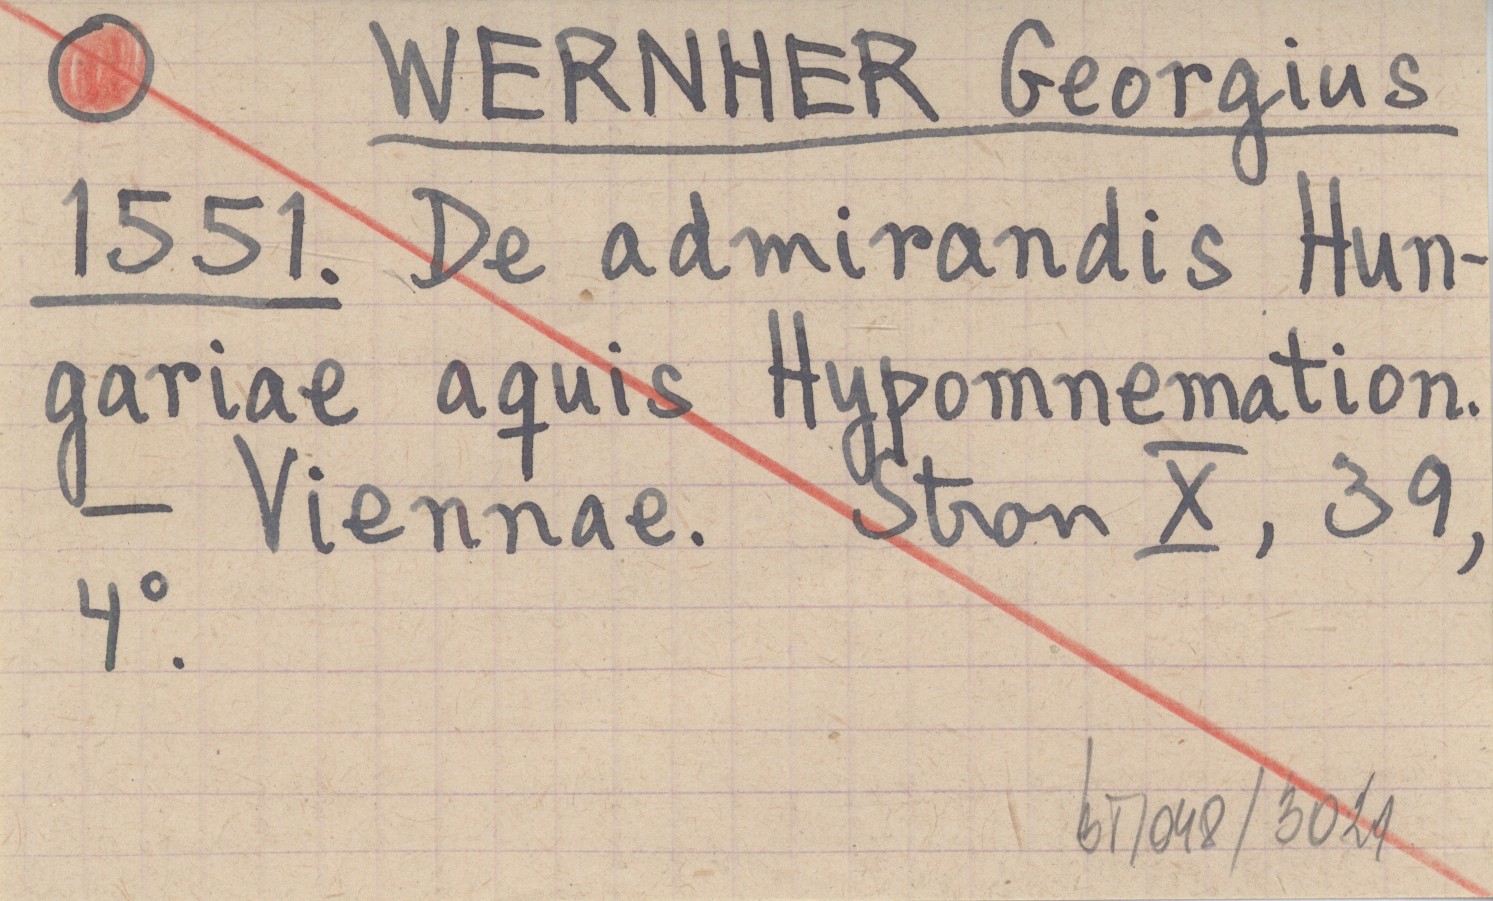 WERNHER Georgius
1551. De admirandis Hun-
gariae aquis Hypomnemation.
— Viennae. Stron X, 39,
4°.